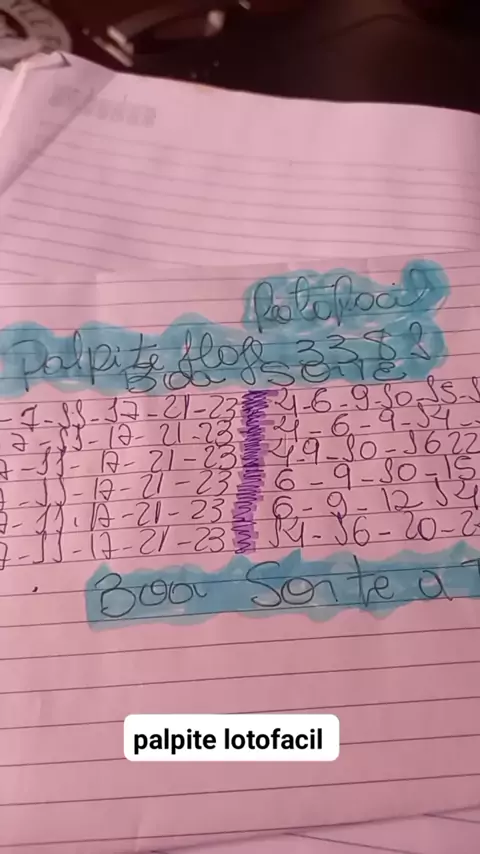 Lotofacil
Palpite
Boa Sorte
-7-11-17-21-23 4-6-9-10-15-
7-11-17-21-23 4-6-9-14-
-11-17-21-23 4-9-10-1622
-11-17-21-23 6-9-10-15
-11-17-21-23 6-9-12 14
-11-17-21-23 14-16-20-2
Boa Sorte a T
palpite lotofacil